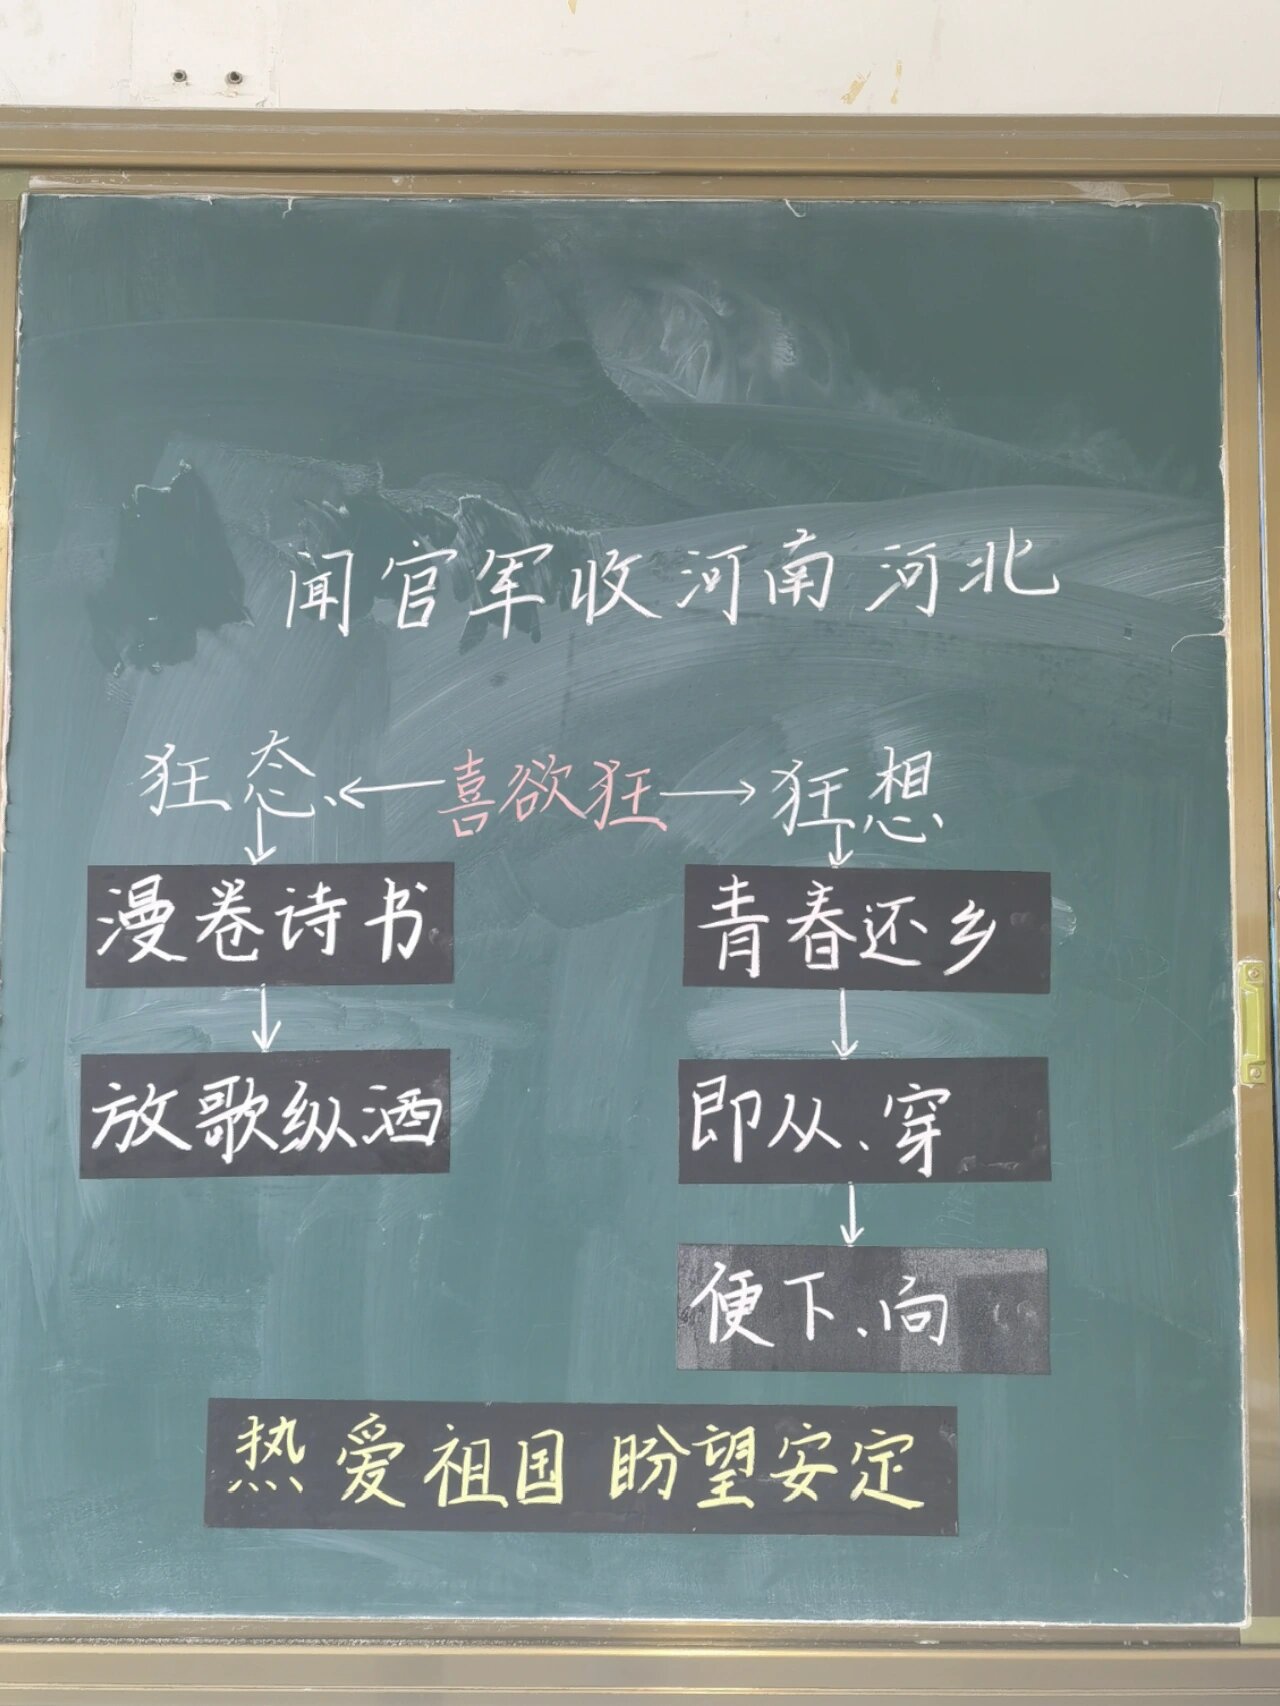 闻官军收河南河北
狂态←喜欲狂→狂想
漫卷诗书 青春还乡
放歌纵酒 即从、穿
便下、向
热爱祖国 盼望安定